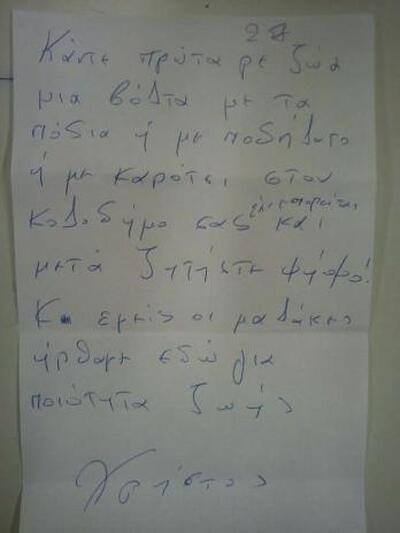 27
Κάντε πρώτα ρε ζώα
μια βόλτα με τα
πόδια ή με ποδήλατο
ή με καρότσι στον
κωλοδήμο σας και
μετά ζητήστε ψήφο!
Κ εμείς οι μαλάκες
ήρθαμε εδώ για
ποιότητα ζωής
Χρήστος